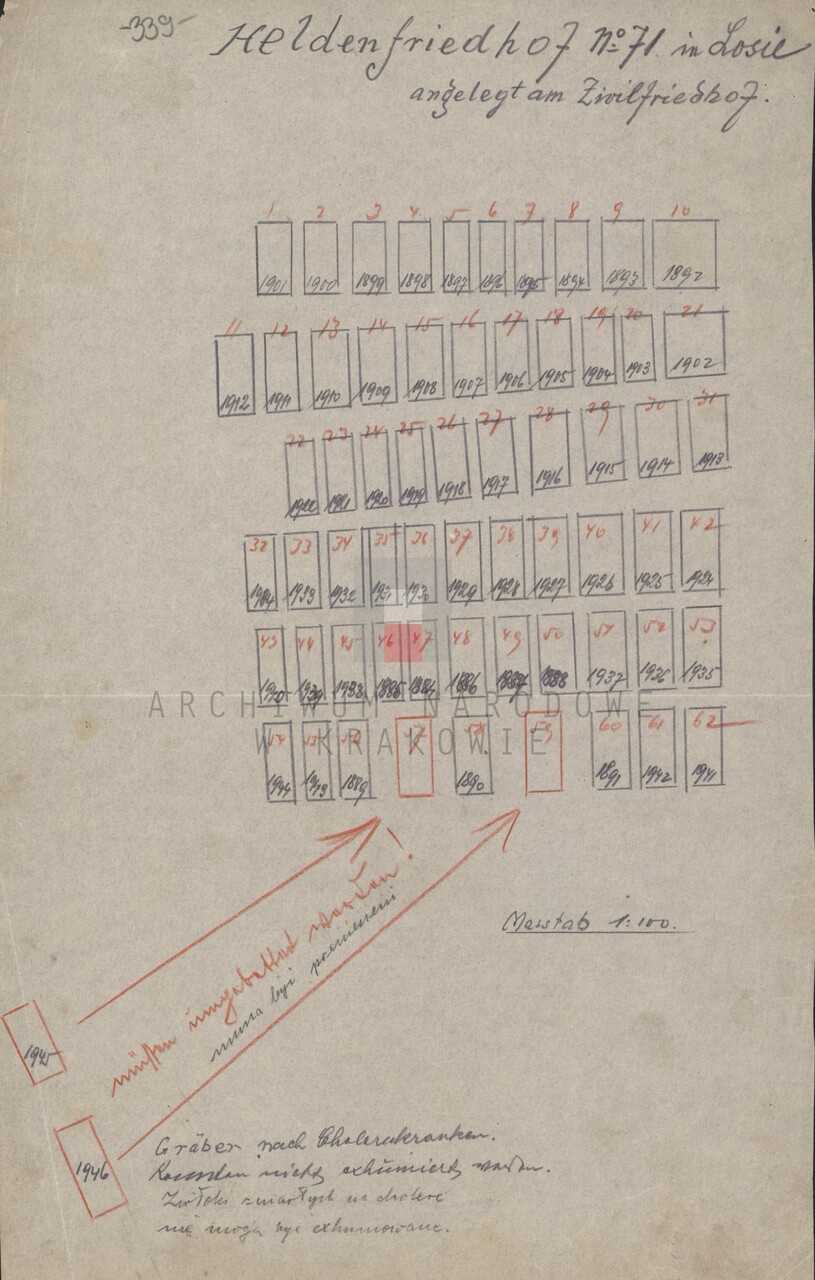 -339-
Heldenfriedhof No 71. in Losie
angelegt am Zivilfriedhof.
1 2 3 4 5 6 7 8 9 10
1901 1900 1899 1898 1897 1896 1895 1894 1893 1892
11 12 13 14 15 16 17 18 19 20 21
1912 1911 1910 1909 1908 1907 1906 1905 1904 1903 1902
22 23 24 25 26 27 28 29 30 31
1922 1921 1920 1919 1918 1917 1916 1915 1914 1913
32 33 34 35 36 37 38 39 40 41 42
1933 1932 1929 1928 1927 1926 1925 1924
43 44 45 46 47 48 49 50 51 52 53
1939 1938 1885 1884 1886 1887 1888 1937 1936 1935
ARCHIWUM NARODOWE
W KRAKOWIE
59 60 61 62
1944 1943 1889 1890 1891 1942 1941
müßen umgebettet werden!
musza być przeniesieni
Masstab 1:100.
1945
1946
Gräber nach Cholerakranken.
nicht exhumiert werden.
Zwłoki zmarłych na cholerę
nie mogą być exhumowane.